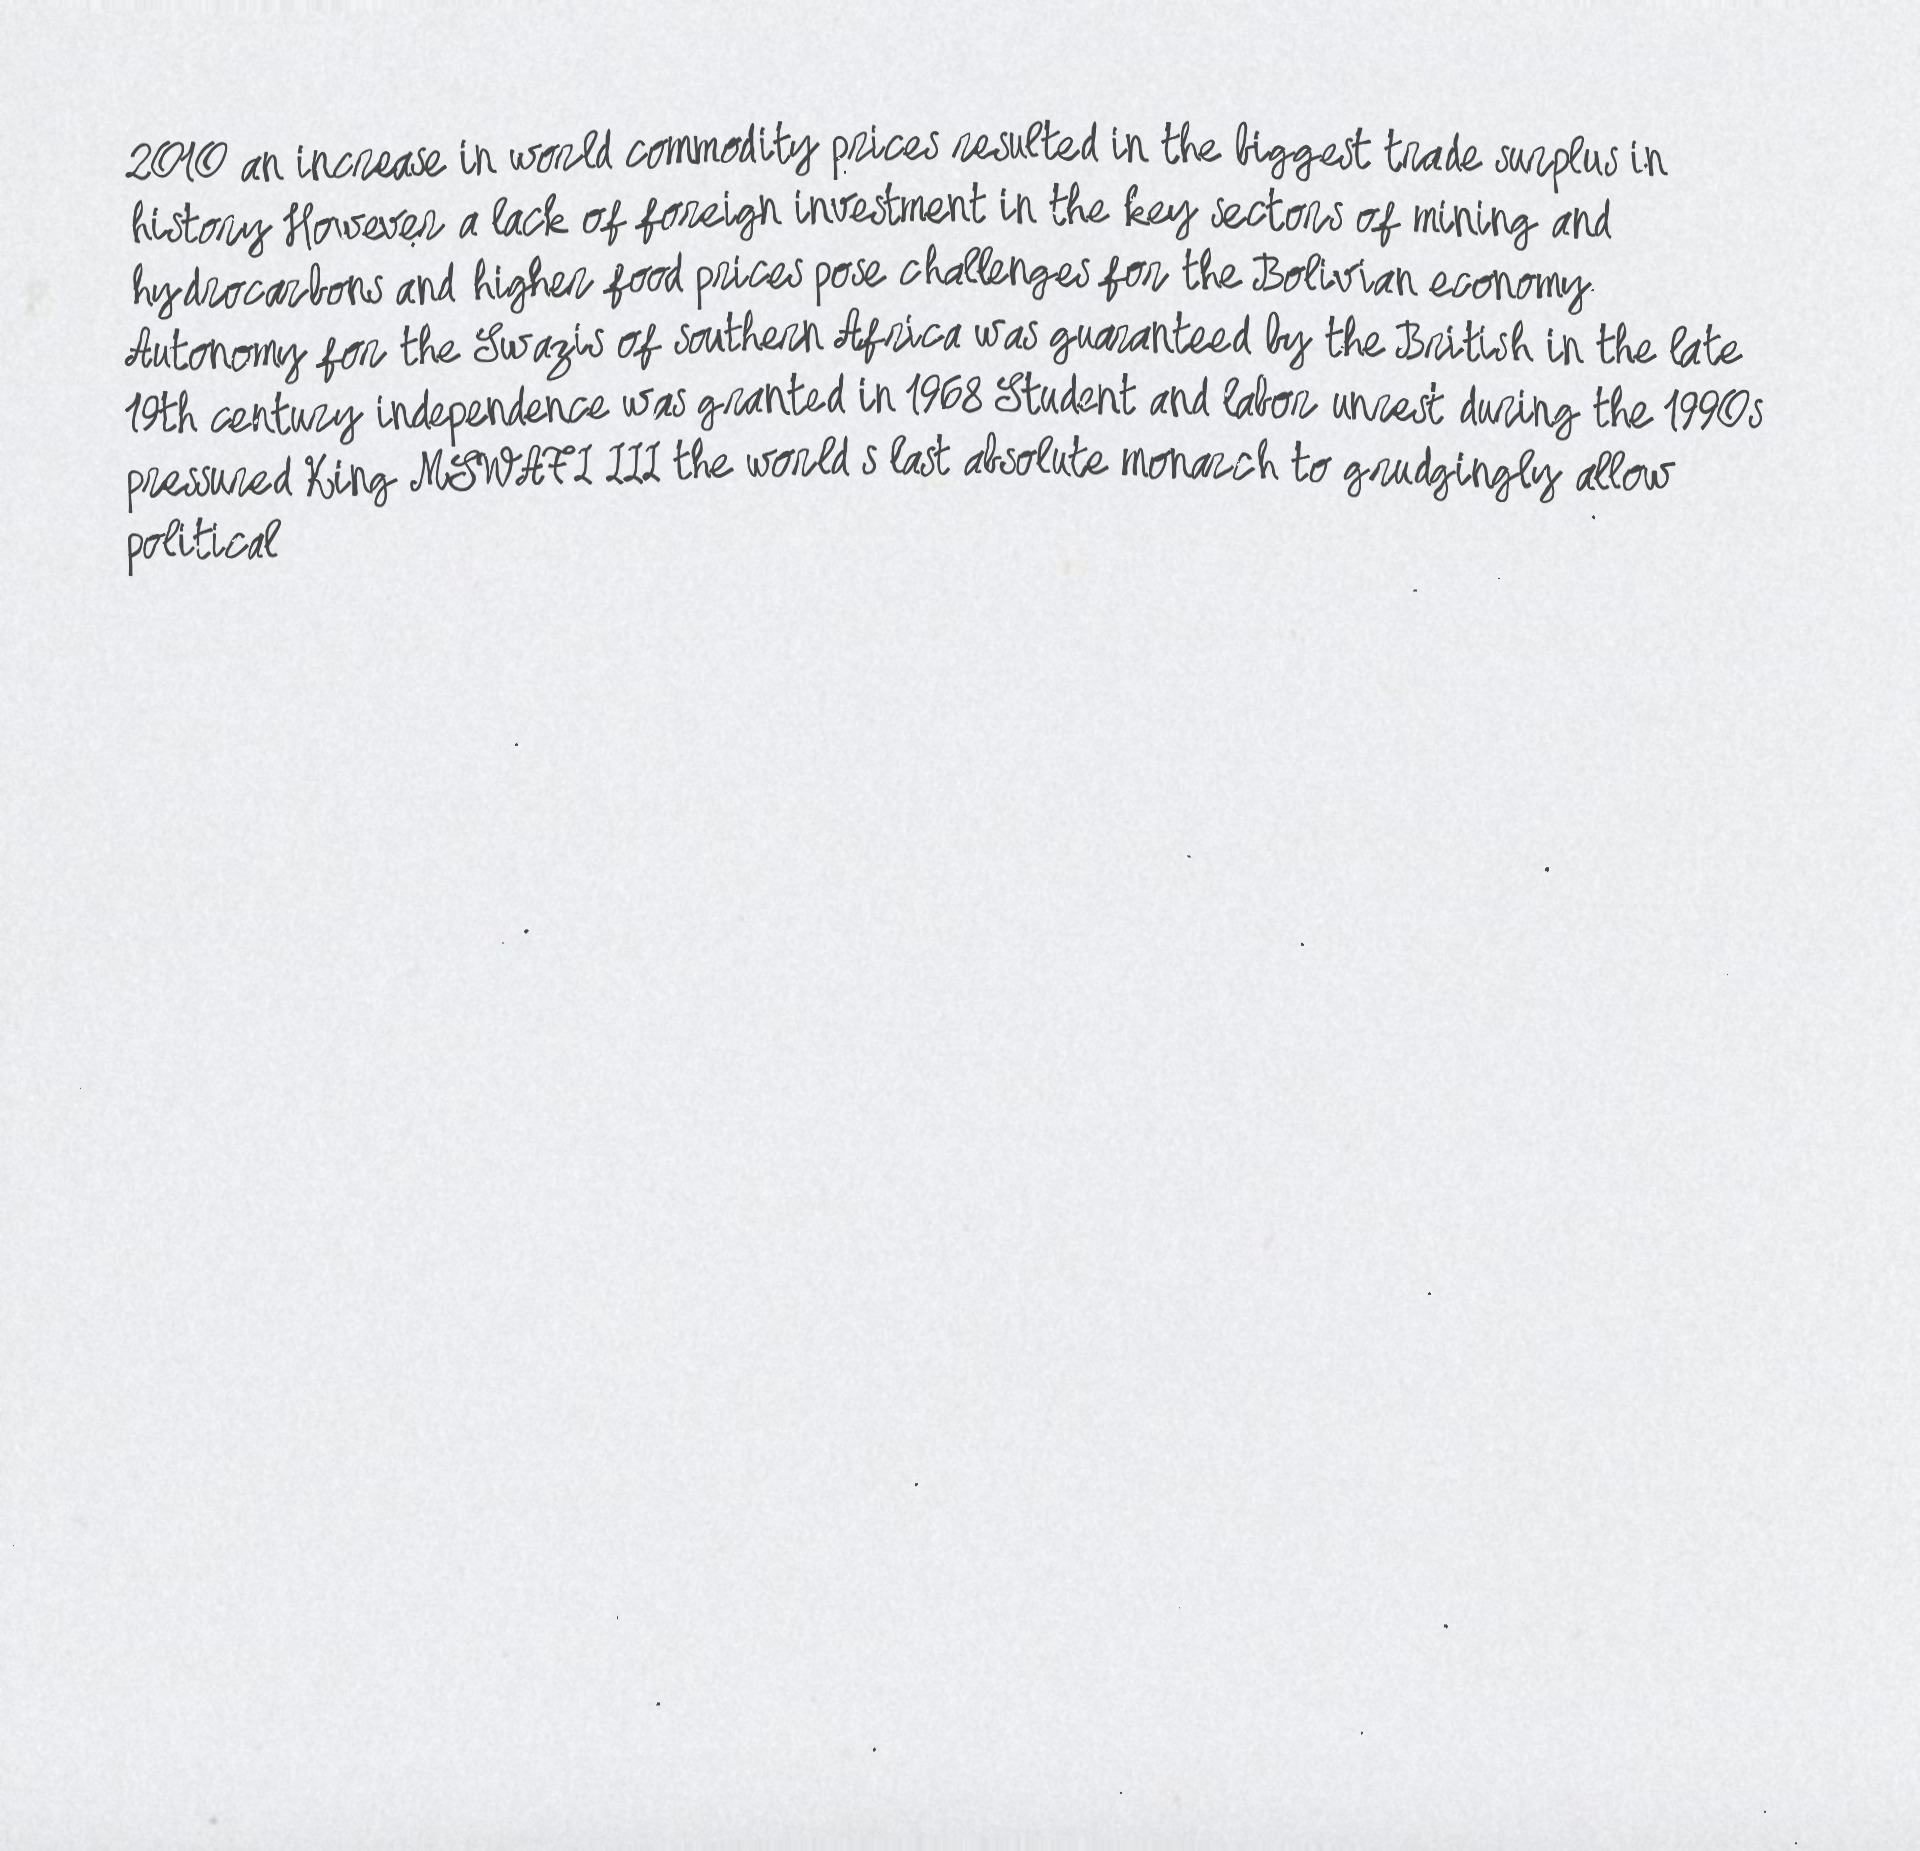 2010 an increase in world commodity prices resulted in the biggest trade surplus in
history However a lack of foreign investment in the key sectors of mining and
hydrocarbons and higher food prices pose challenges for the Bolivian economy
Autonomy for the Swazis of southern Africa was guaranteed by the British in the late
19th century independence was granted in 1968 Student and labor unrest during the 1990s
pressured King MSWATI III the world s last absolute monarch to grudgingly allow
political